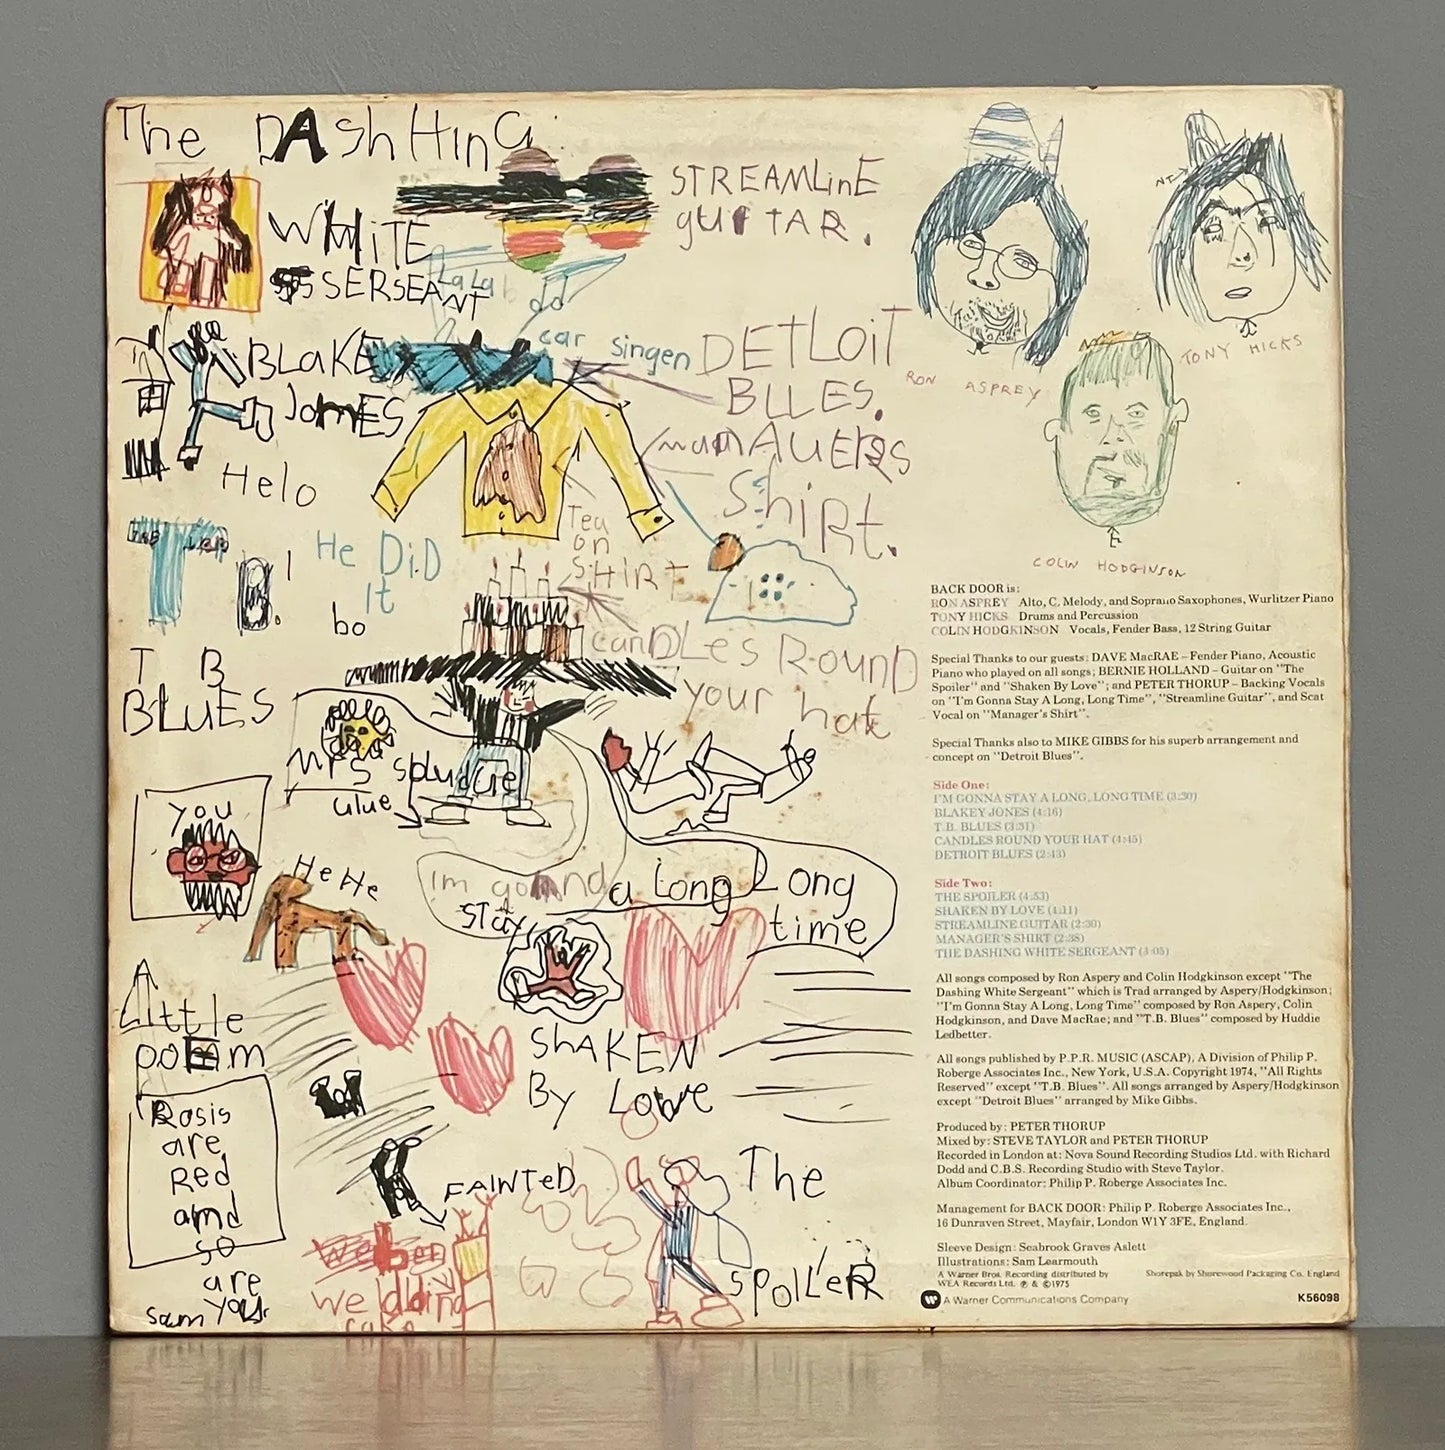 The DASHHING
WHITE
SERSEANT
STREAMLinE
guITAR.
LaLaL
dd
car singen
BLAKE
JomES
DETLOiT
BLLES.
mamAUERS
Shirt.
Helo
He DiD
It
Tea
on
SHIRT
B.
bo
T B
BLUES
canDLes ROUND
your hat
mrs spludgue
Glue
you
HeHe
Im gonnd
stay
a Long Long
time
SHAKEN
By Love
A
little
poEmm
Rosis
are
Red
and
so
are
you.
Sam
FAINTED
wedding
cake
The
spoiLLeR
RON ASPREY
TONY HICKS
COLIN HODGINSON
BACK DOOR is:
RON ASPREY Alto, C. Melody, and Soprano Saxophones, Wurlitzer Piano
TONY HICKS Drums and Percussion
COLIN HODGKINSON Vocals, Fender Bass, 12 String Guitar
Special Thanks to our guests: DAVE MacRAE – Fender Piano, Acoustic
Piano who played on all songs; BERNIE HOLLAND – Guitar on "The
Spoiler" and "Shaken By Love"; and PETER THORUP – Backing Vocals
on "I'm Gonna Stay A Long, Long Time", "Streamline Guitar", and Scat
Vocal on "Manager's Shirt".
Special Thanks also to MIKE GIBBS for his superb arrangement and
concept on "Detroit Blues".
Side One:
I'M GONNA STAY A LONG, LONG TIME (3:30)
BLAKEY JONES (4:16)
T.B. BLUES (3:31)
CANDLES ROUND YOUR HAT (4:45)
DETROIT BLUES (2:43)
Side Two:
THE SPOILER (4:53)
SHAKEN BY LOVE (4:11)
STREAMLINE GUITAR (2:30)
MANAGER'S SHIRT (2:38)
THE DASHING WHITE SERGEANT (3:05)
All songs composed by Ron Aspery and Colin Hodgkinson except "The
Dashing White Sergeant" which is Trad arranged by Aspery/Hodgkinson;
"I'm Gonna Stay A Long, Long Time" composed by Ron Aspery, Colin
Hodgkinson, and Dave MacRae; and "T.B. Blues" composed by Huddie
Ledbetter.
All songs published by P.P.R. MUSIC (ASCAP), A Division of Philip P.
Roberge Associates Inc., New York, U.S.A. Copyright 1974, "All Rights
Reserved" except "T.B. Blues". All songs arranged by Aspery/Hodgkinson
except "Detroit Blues" arranged by Mike Gibbs.
Produced by: PETER THORUP
Mixed by: STEVE TAYLOR and PETER THORUP
Recorded in London at: Nova Sound Recording Studios Ltd. with Richard
Dodd and C.B.S. Recording Studio with Steve Taylor.
Album Coordinator: Philip P. Roberge Associates Inc.
Management for BACK DOOR: Philip P. Roberge Associates Inc.,
16 Dunraven Street, Mayfair, London W1Y 3FE, England.
Sleeve Design: Seabrook Graves Aslett
Illustrations: Sam Learmouth
A Warner Bros. Recording distributed by
WEA Records Ltd. ℗ & ©1975
Shorepak by Shorewood Packaging Co. England
A Warner Communications Company
K56098